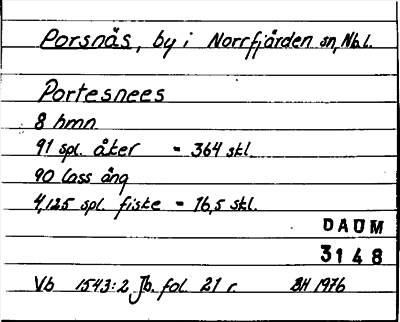 Porsnäs, by i Norrfjärden sn, Nb.l.
Portesnees
8 hmn
91 spl. åker = 364 skl.
90 lass äng
4,125 spl. fiske = 16,5 skl.
DAUM
3148
Vb 1543:2 Jb. fol. 21 r. BH 1976